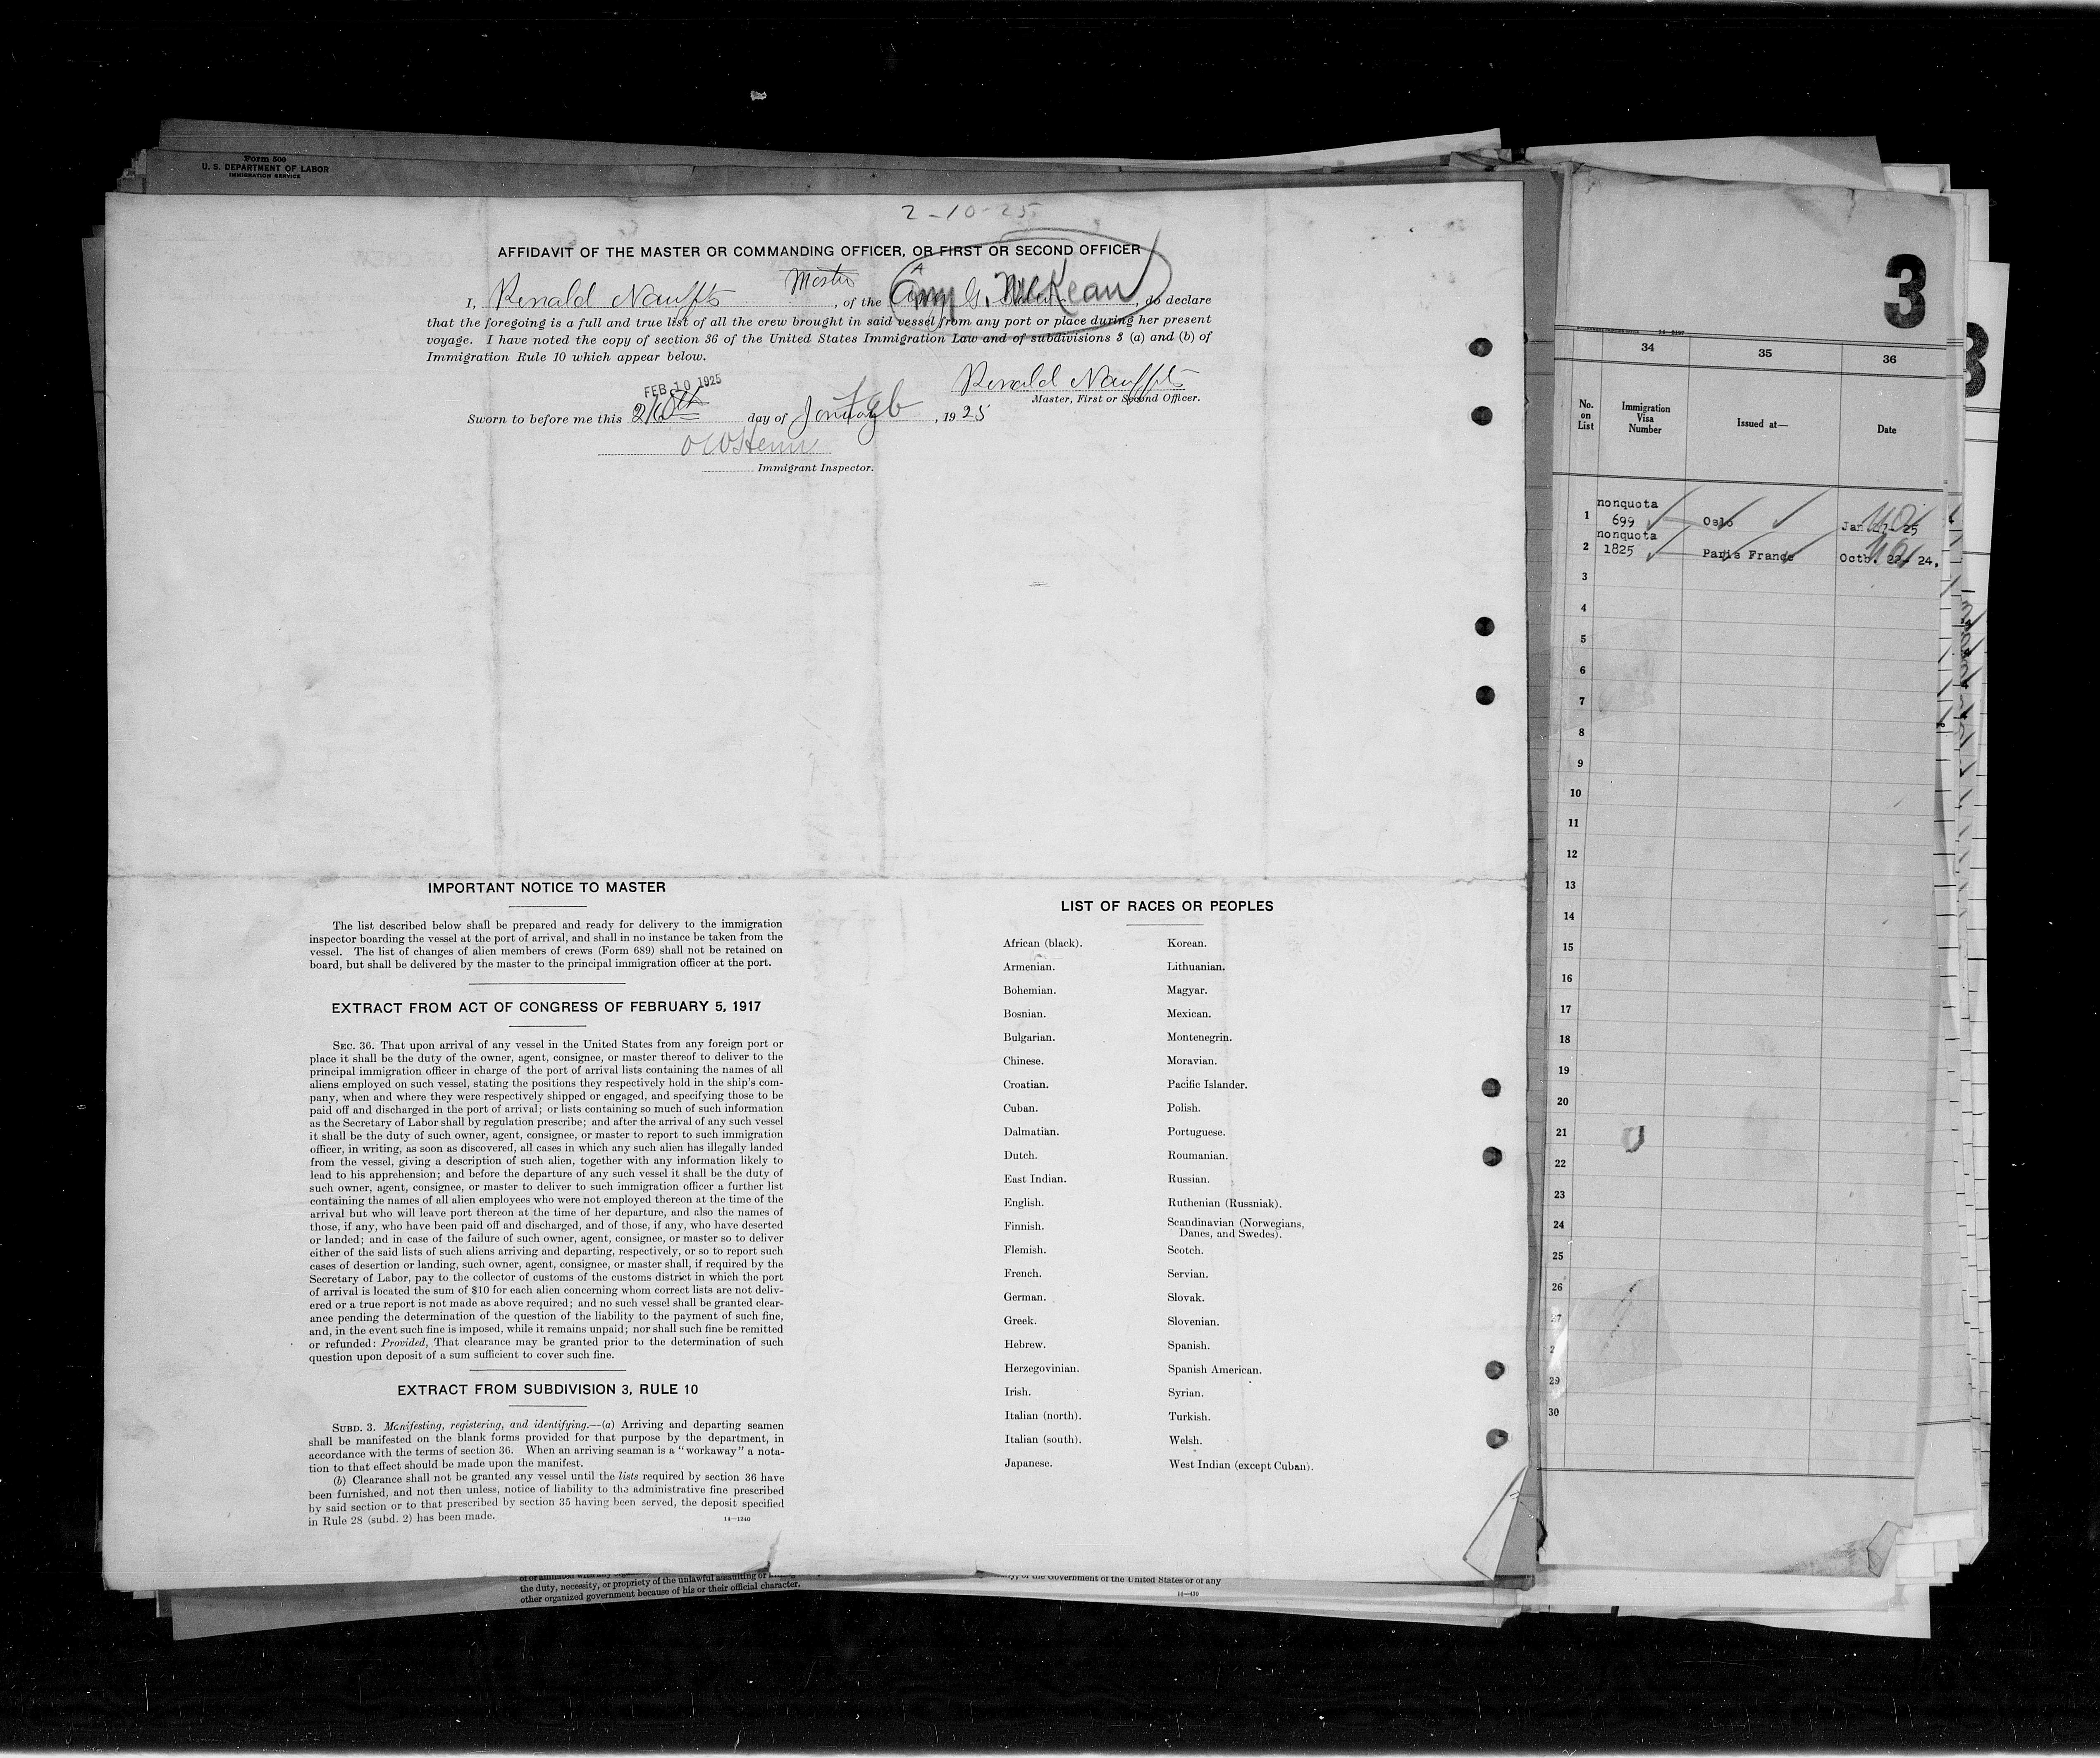 Form 500
U. S. DEPARTMENT OF LABOR
IMMIGRATION SERVICE
2-10-25
AFFIDAVIT OF THE MASTER OR COMMANDING OFFICER, OR FIRST OR SECOND OFFICER
I, Ronald Nauffts Master, of the Amy G. McKean, do declare
that the foregoing is a full and true list of all the crew brought in said vessel from any port or place during her present
voyage. I have noted the copy of section 36 of the United States Immigration Law and of subdivisions 3 (a) and (b) of
Immigration Rule 10 which appear below.
Ronald Nauffts
Master, First or Second Officer.
FEB 10 1925
Sworn to before me this 10th day of Feb, 1925
Immigrant Inspector.
IMPORTANT NOTICE TO MASTER
The list described below shall be prepared and ready for delivery to the immigration
inspector boarding the vessel at the port of arrival, and shall in no instance be taken from the
vessel. The list of changes of alien members of crews (Form 689) shall not be retained on
board, but shall be delivered by the master to the principal immigration officer at the port.
EXTRACT FROM ACT OF CONGRESS OF FEBRUARY 5, 1917
SEC. 36. That upon arrival of any vessel in the United States from any foreign port or
place it shall be the duty of the owner, agent, consignee, or master thereof to deliver to the
principal immigration officer in charge of the port of arrival lists containing the names of all
aliens employed on such vessel, stating the positions they respectively hold in the ship's com-
pany, when and where they were respectively shipped or engaged, and specifying those to be
paid off and discharged in the port of arrival; or lists containing so much of such information
as the Secretary of Labor shall by regulation prescribe; and after the arrival of any such vessel
it shall be the duty of such owner, agent, consignee, or master to report to such immigration
officer, in writing, as soon as discovered, all cases in which any such alien has illegally landed
from the vessel, giving a description of such alien, together with any information likely to
lead to his apprehension; and before the departure of any such vessel it shall be the duty of
such owner, agent, consignee, or master to deliver to such immigration officer a further list
containing the names of all alien employees who were not employed thereon at the time of the
arrival but who will leave port thereon at the time of her departure, and also the names of
those, if any, who have been paid off and discharged, and of those, if any, who have deserted
or landed; and in case of the failure of such owner, agent, consignee, or master so to deliver
either of the said lists of such aliens arriving and departing, respectively, or so to report such
cases of desertion or landing, such owner, agent, consignee, or master shall, if required by the
Secretary of Labor, pay to the collector of customs of the customs district in which the port
of arrival is located the sum of $10 for each alien concerning whom correct lists are not deliv-
ered or a true report is not made as above required; and no such vessel shall be granted clear-
ance pending the determination of the question of the liability to the payment of such fine,
and, in the event such fine is imposed, while it remains unpaid; nor shall such fine be remitted
or refunded: Provided, That clearance may be granted prior to the determination of such
question upon deposit of a sum sufficient to cover such fine.
EXTRACT FROM SUBDIVISION 3, RULE 10
SUBD. 3. Manifesting, registering, and identifying.—(a) Arriving and departing seamen
shall be manifested on the blank forms provided for that purpose by the department, in
accordance with the terms of section 36. When an arriving seaman is a "workaway" a nota-
tion to that effect should be made upon the manifest.
(b) Clearance shall not be granted any vessel until the lists required by section 36 have
been furnished, and not then unless, notice of liability to the administrative fine prescribed
by said section or to that prescribed by section 35 having been served, the deposit specified
in Rule 28 (subd. 2) has been made.
14—1240
LIST OF RACES OR PEOPLES
African (black).
Armenian.
Bohemian.
Bosnian.
Bulgarian.
Chinese.
Croatian.
Cuban.
Dalmatian.
Dutch.
East Indian.
English.
Finnish.
Flemish.
French.
German.
Greek.
Hebrew.
Herzegovinian.
Irish.
Italian (north).
Italian (south).
Japanese.
Korean.
Lithuanian.
Magyar.
Mexican.
Montenegrin.
Moravian.
Pacific Islander.
Polish.
Portuguese.
Roumanian.
Russian.
Ruthenian (Russniak).
Scandinavian (Norwegians,
Danes, and Swedes).
Scotch.
Servian.
Slovak.
Slovenian.
Spanish.
Spanish American.
Syrian.
Turkish.
Welsh.
West Indian (except Cuban).
the duty, necessity, or propriety of the unlawful assaulting or
other organized government because of his or their official character.
of the Government of the United States or of any
14—430
3
34 35 36
No. on List Immigration Visa Number Issued at— Date
1 nonquota 699 Oslo Jan 27- 25
2 nonquota 1825 Paris France Octb. 22- 24.
3
4
5
6
7
8
9
10
11
12
13
14
15
16
17
18
19
20
21
22
23
24
25
26
27
29
30